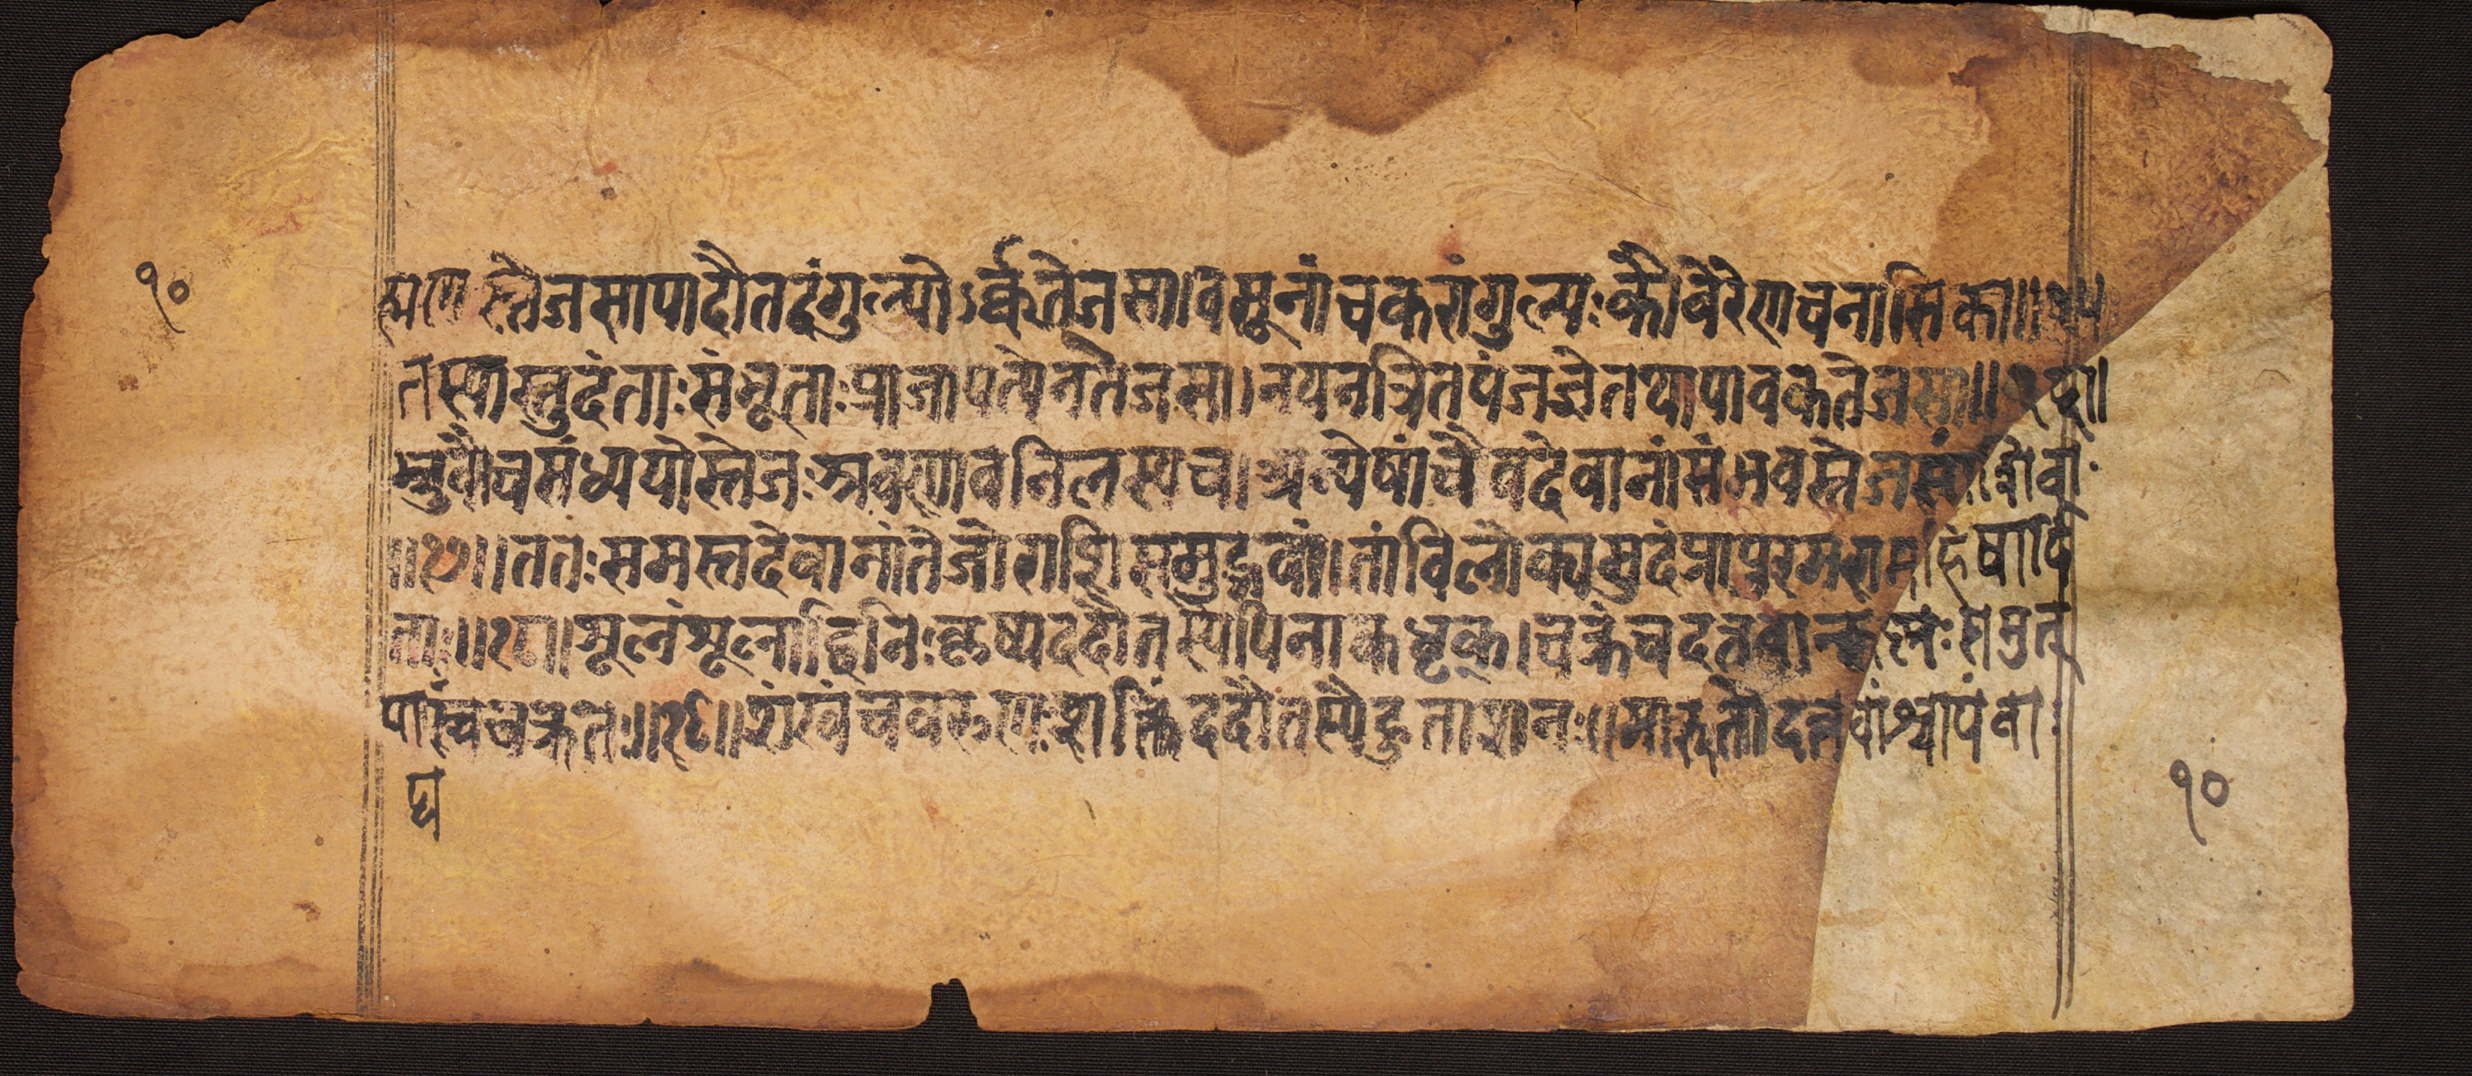 १०
ह्मणस्तेजसापादौतदंगुल्योऽर्क्कतेजसा।वसूनांचकरांगुल्यःकौवेरेणचनासिका॥१५
तस्यास्तुदंताःसंभूताःप्राजापत्येनतेजसा।नयनत्रितयंजज्ञेतथापावकतेजसा॥१६॥
भ्रुवौचसंध्ययोस्तेजःश्रवणावनिलस्यच।अन्येषांचैवदेवानांसंभवस्तेजसांशिवा
॥१७॥ततःसमस्तदेवानांतेजोराशिसमुद्भवां।तांविलोक्यमुदंप्रापुरमरामहिषार्दि
ताः॥१८॥शूलंशूलाद्विनिःकृष्यददौतस्यैपिनाकधृक्।चक्रंचदत्तवान्कृष्णःसमुत्
पाद्यस्वचक्रतः॥१९॥शंखंचवरुणःशक्तिंददौतस्यैहुताशनः॥मारुतोदत्तवांश्चापंवा
१०